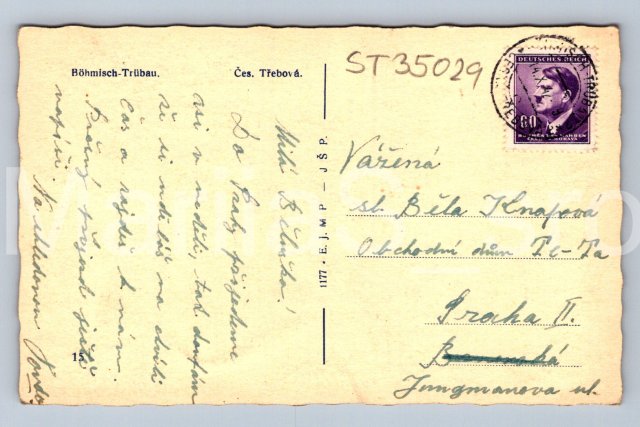 Böhmisch-Trübau. Čes. Třebová.
ST35029
DEUTSCHES REICH
60
BÖHMEN UND MÄHREN
ČECHY A MORAVA
Milá Běluško!
Do Prahy přijedeme
asi v neděli, tak doufám
že si uděláš na chvíli
čas a zajdeš k nám.
příjezd ještě
napíši.
Na shledanou
15
1177 · E. J. MP - JŠP.
Vážená
sl. Běla Knapová
Obchodní dům Te-Ta
Praha II.
Jungmanova ul.